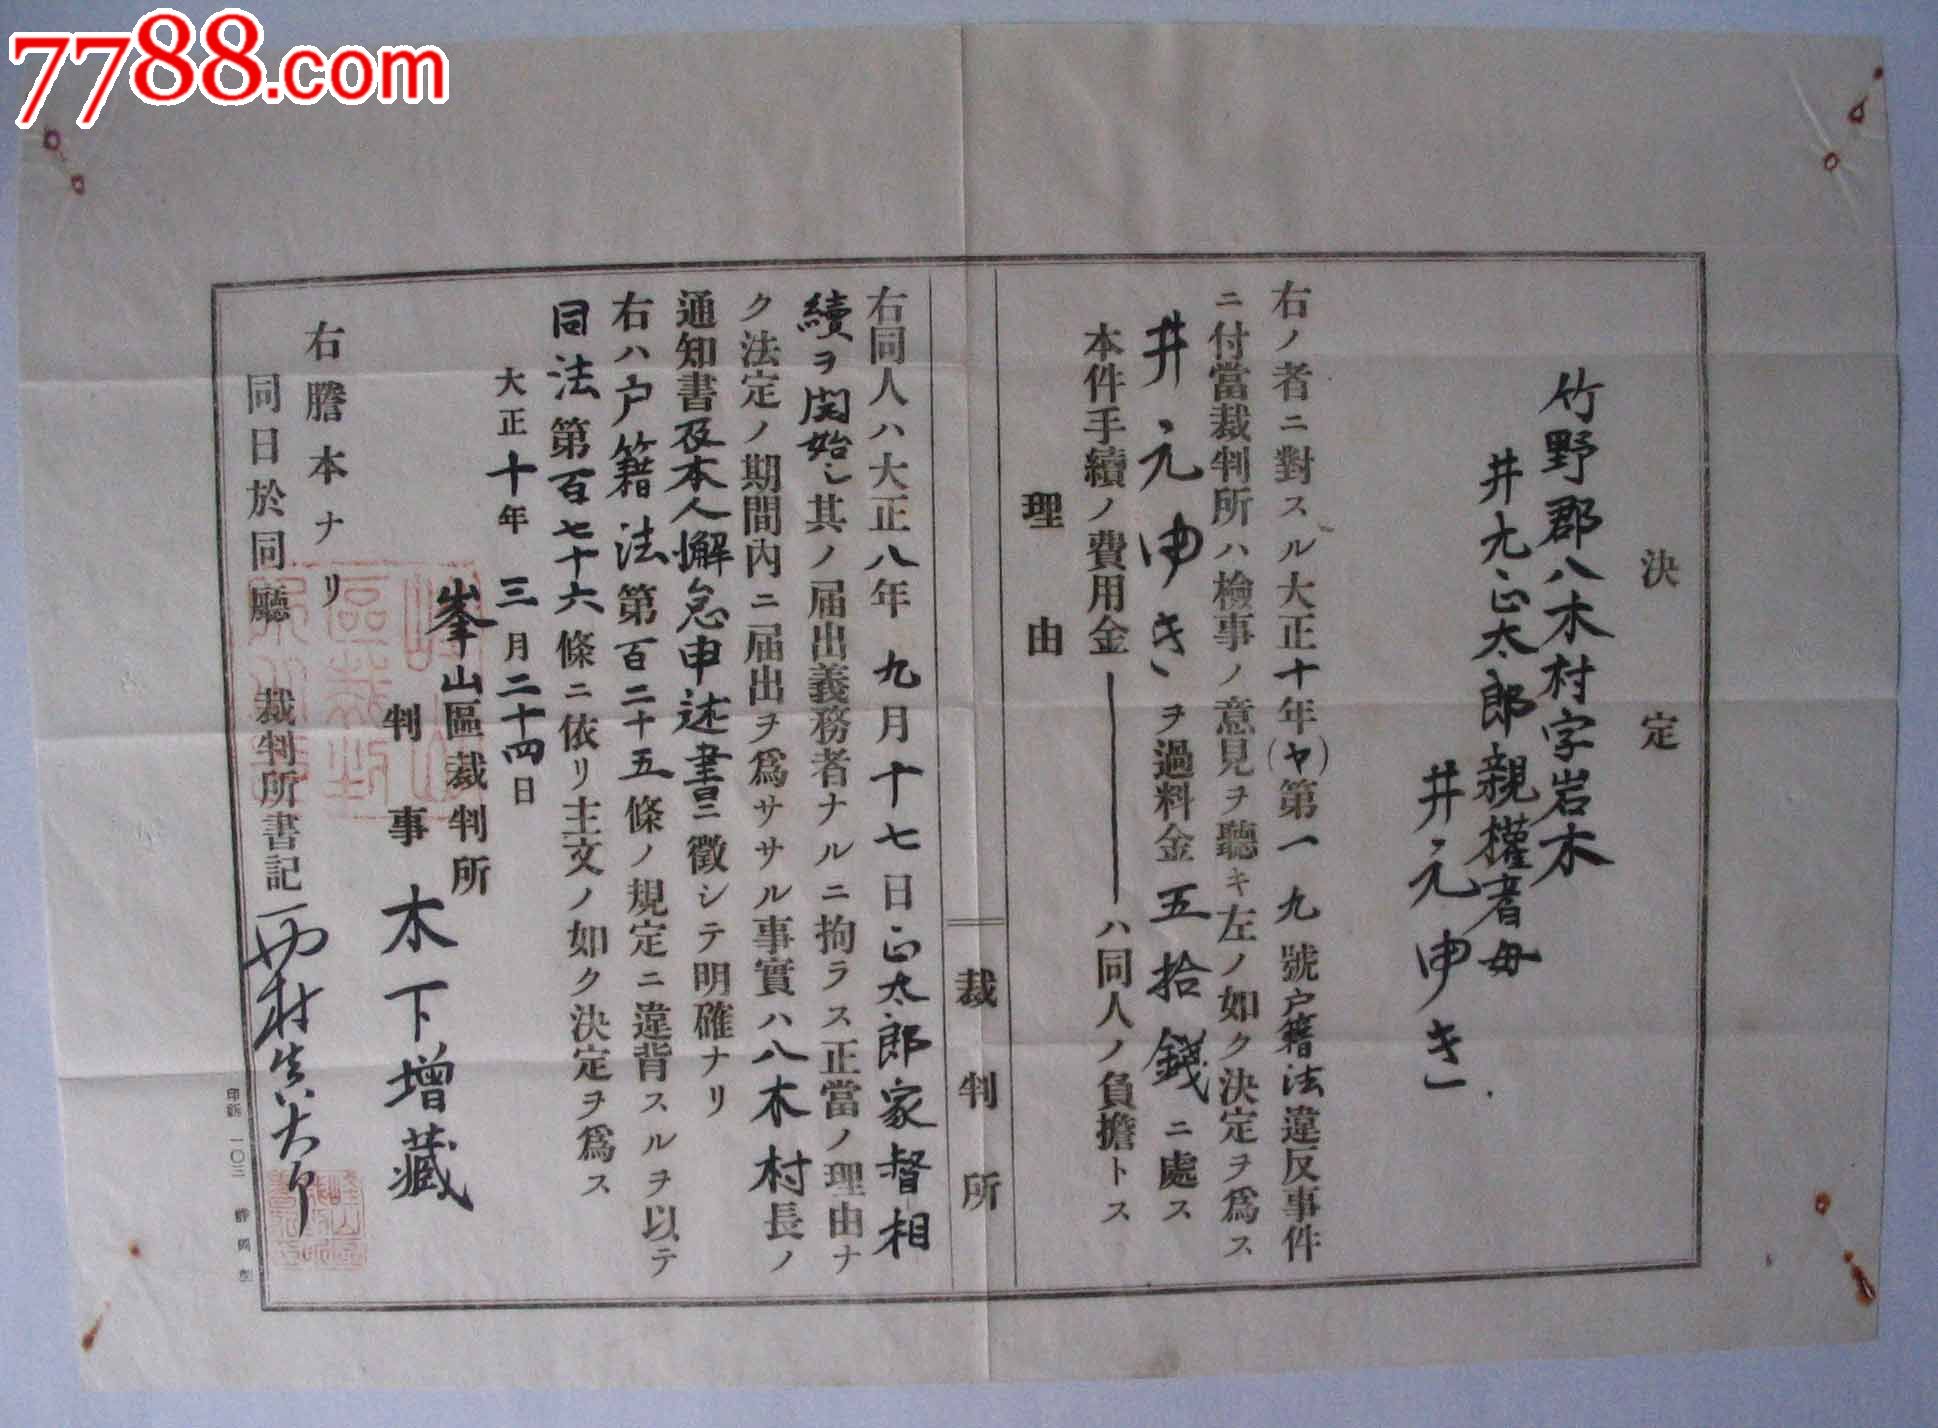 7788.com
決定
竹野郡八木村字岩木
井元正太郎親權者母
井元ゆき
右ノ者ニ對スル大正十年(ヤ)第一九號戸籍法違反事件
ニ付當裁判所ハ檢事ノ意見ヲ聽キ左ノ如ク決定ヲ爲ス
井元ゆきヲ過料金五拾錢ニ處ス
本件手續ノ費用金――ハ同人ノ負擔トス
理由
裁判所
右同人ハ大正八年九月十七日正太郎家督相
續ヲ開始シ其ノ届出義務者ナルニ拘ラス正當ノ理由ナ
ク法定ノ期間內ニ届出ヲ爲ササル事實ハ八木村長ノ
通知書及本人懈怠申述書ニ徵シテ明確ナリ
右ハ户籍法第百二十五條ノ規定ニ違背スルヲ以テ
同法第百七十六條ニ依リ主文ノ如ク決定ヲ爲ス
大正十年三月二十四日
峯山區裁判所
判事 木下增藏
右謄本ナリ
同日於同廳
裁判所書記 西村
印新 一〇三